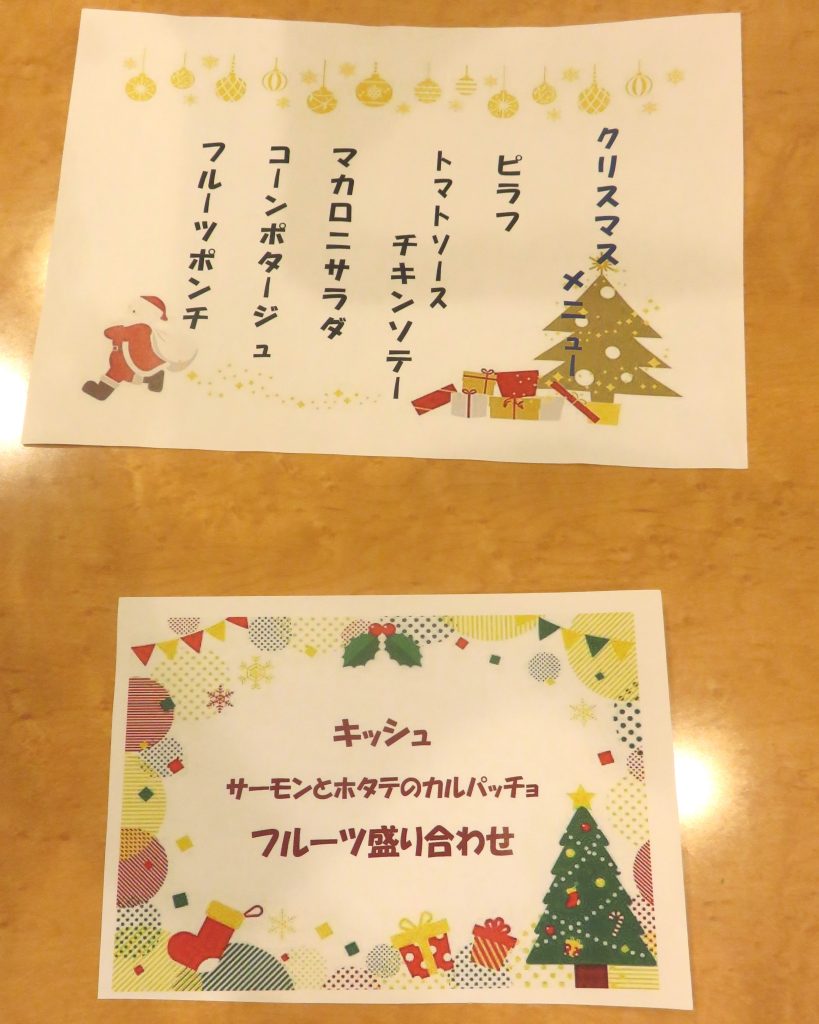 クリスマス
メニュー
ピラフ
トマトソース
チキンソテー
マカロニサラダ
コーンポタージュ
フルーツポンチ
キッシュ
サーモンとホタテのカルパッチョ
フルーツ盛り合わせ